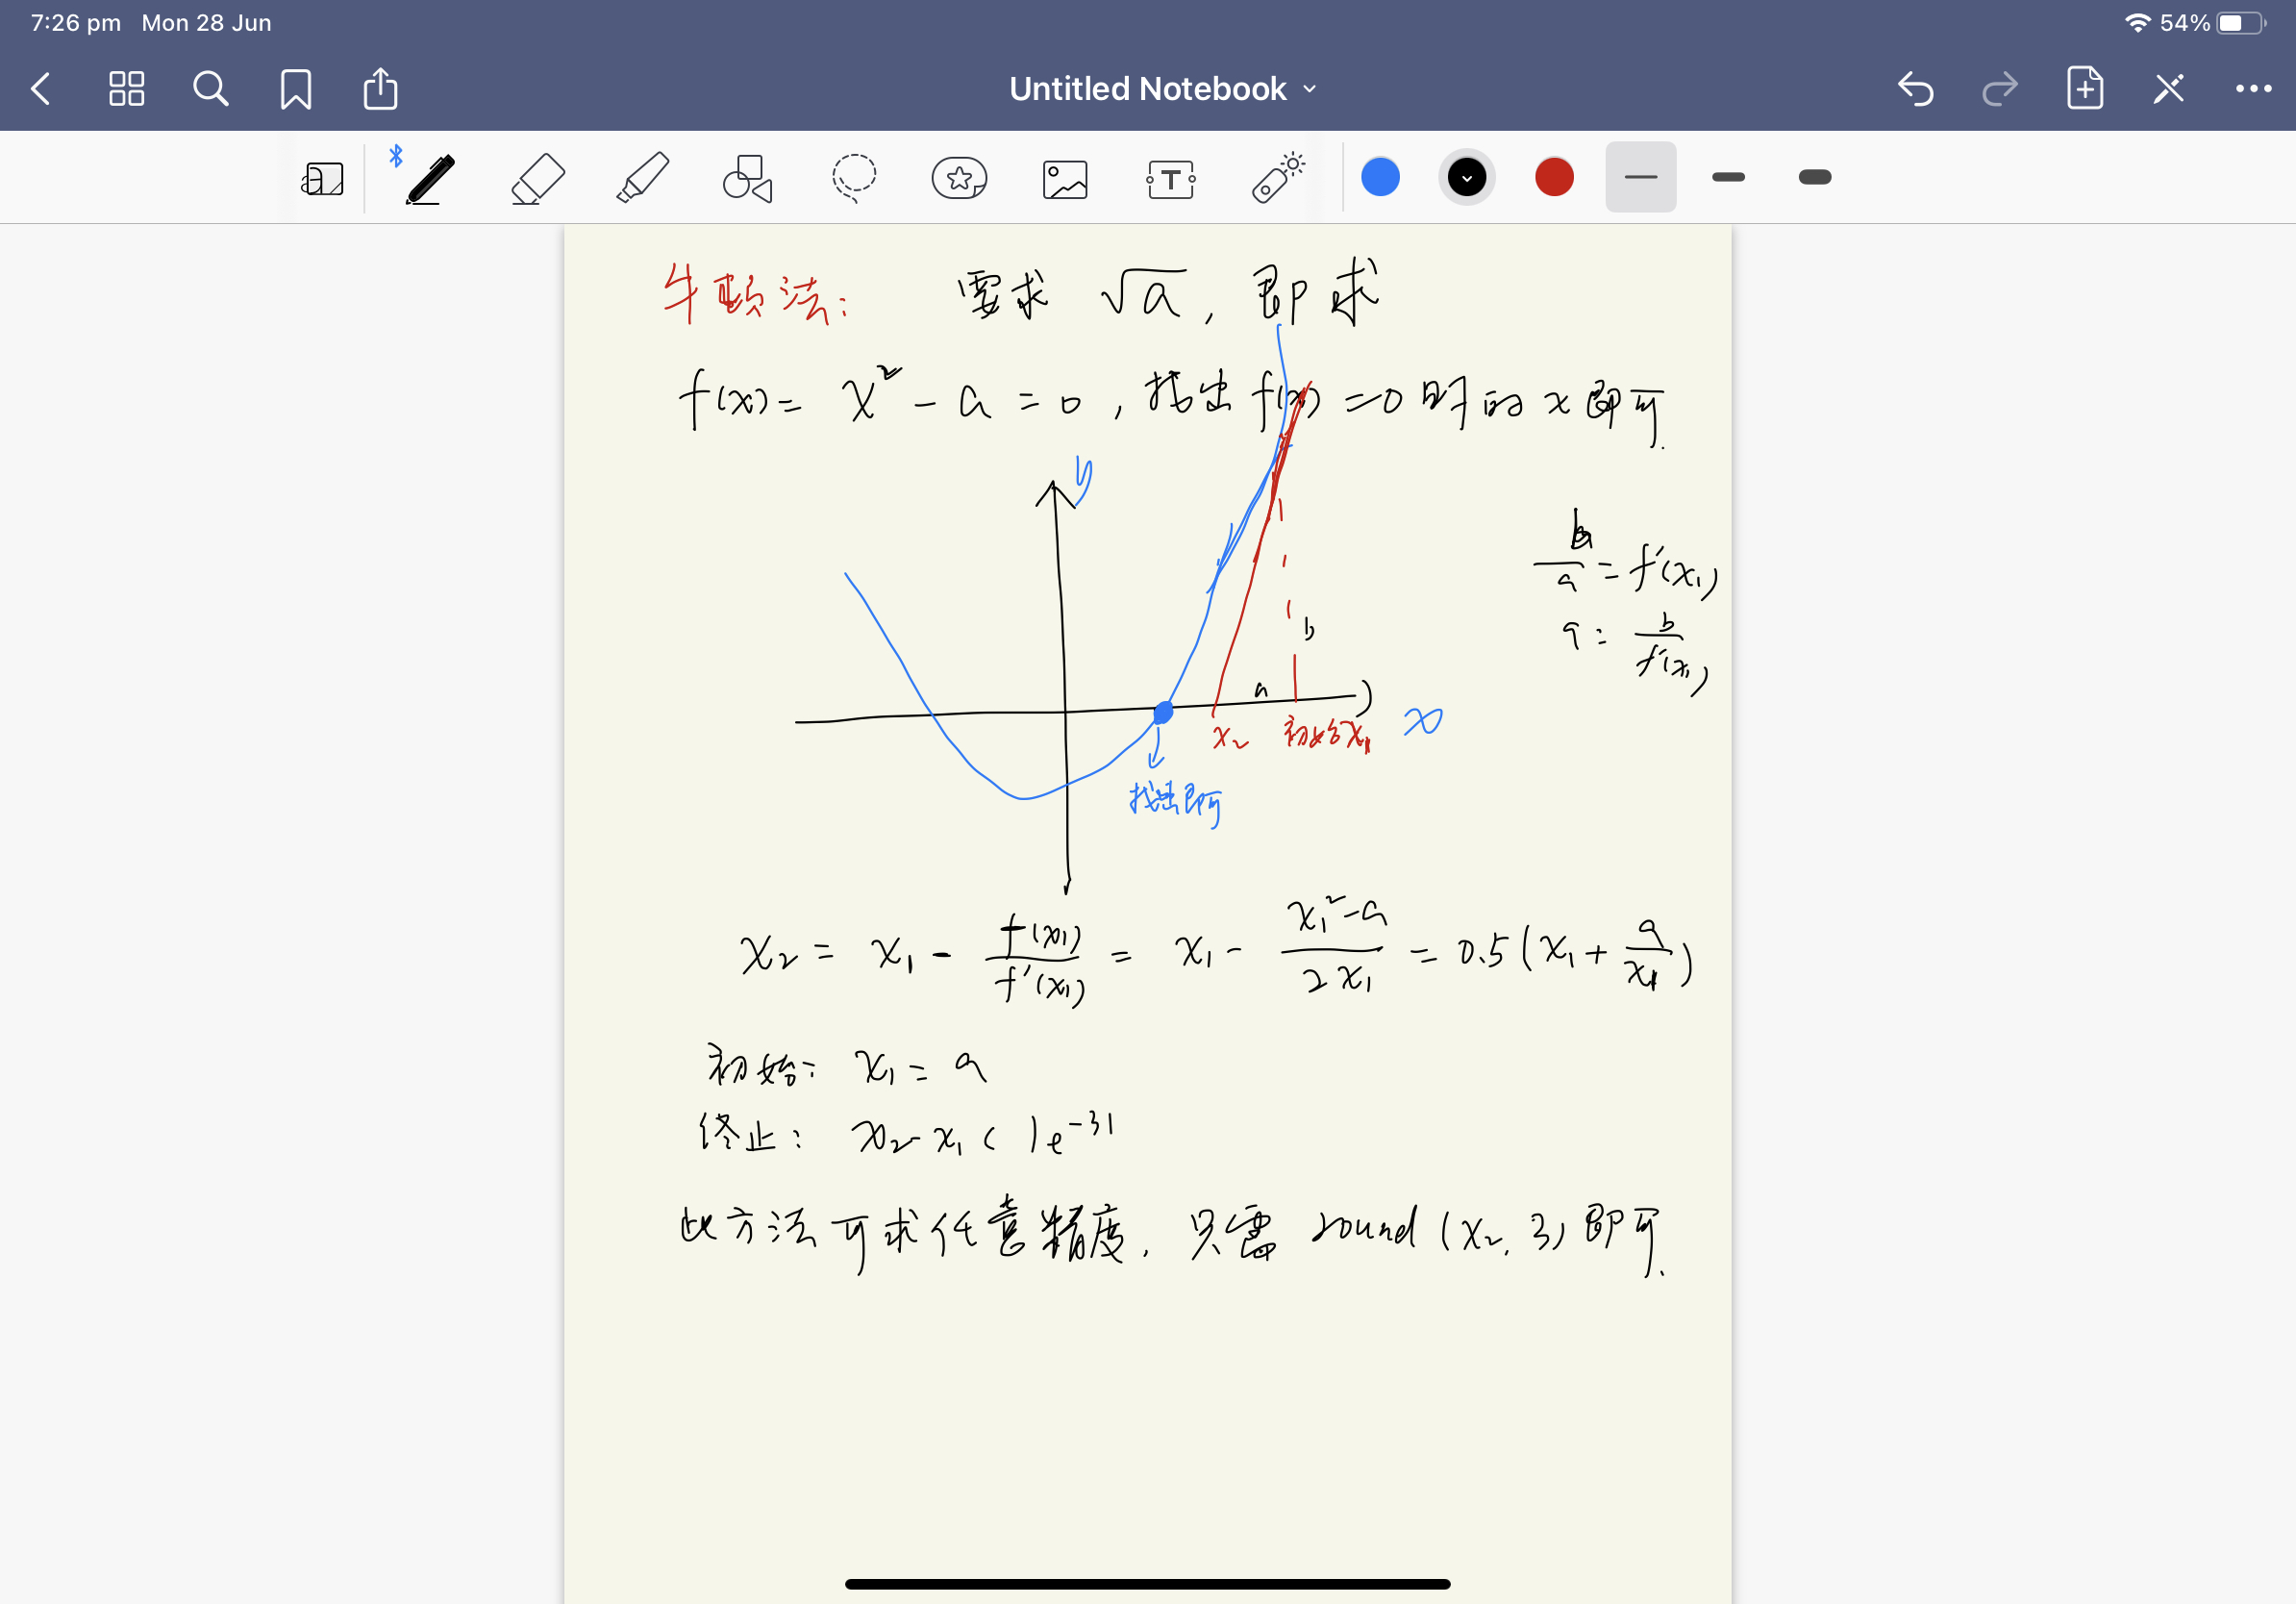 7:26 pm Mon 28 Jun
54%
Untitled Notebook
牛顿法: 要求 √a, 即求
f(x) = x² - a = 0, 找出 f(x) = 0 时的 x 即可.
y
b/a = f'(x₁)
a = b/f'(x₁)
b
a
x₂ 初始x₁ x
找出即可
x₂ = x₁ - f(x₁)/f'(x₁) = x₁ - (x₁²-a)/(2x₁) = 0.5(x₁ + a/x₁)
初始: x₁ = a
终止: x₂ - x₁ < 1e⁻³¹
此方法可求任意精度, 只需 round(x₂, 3) 即可.